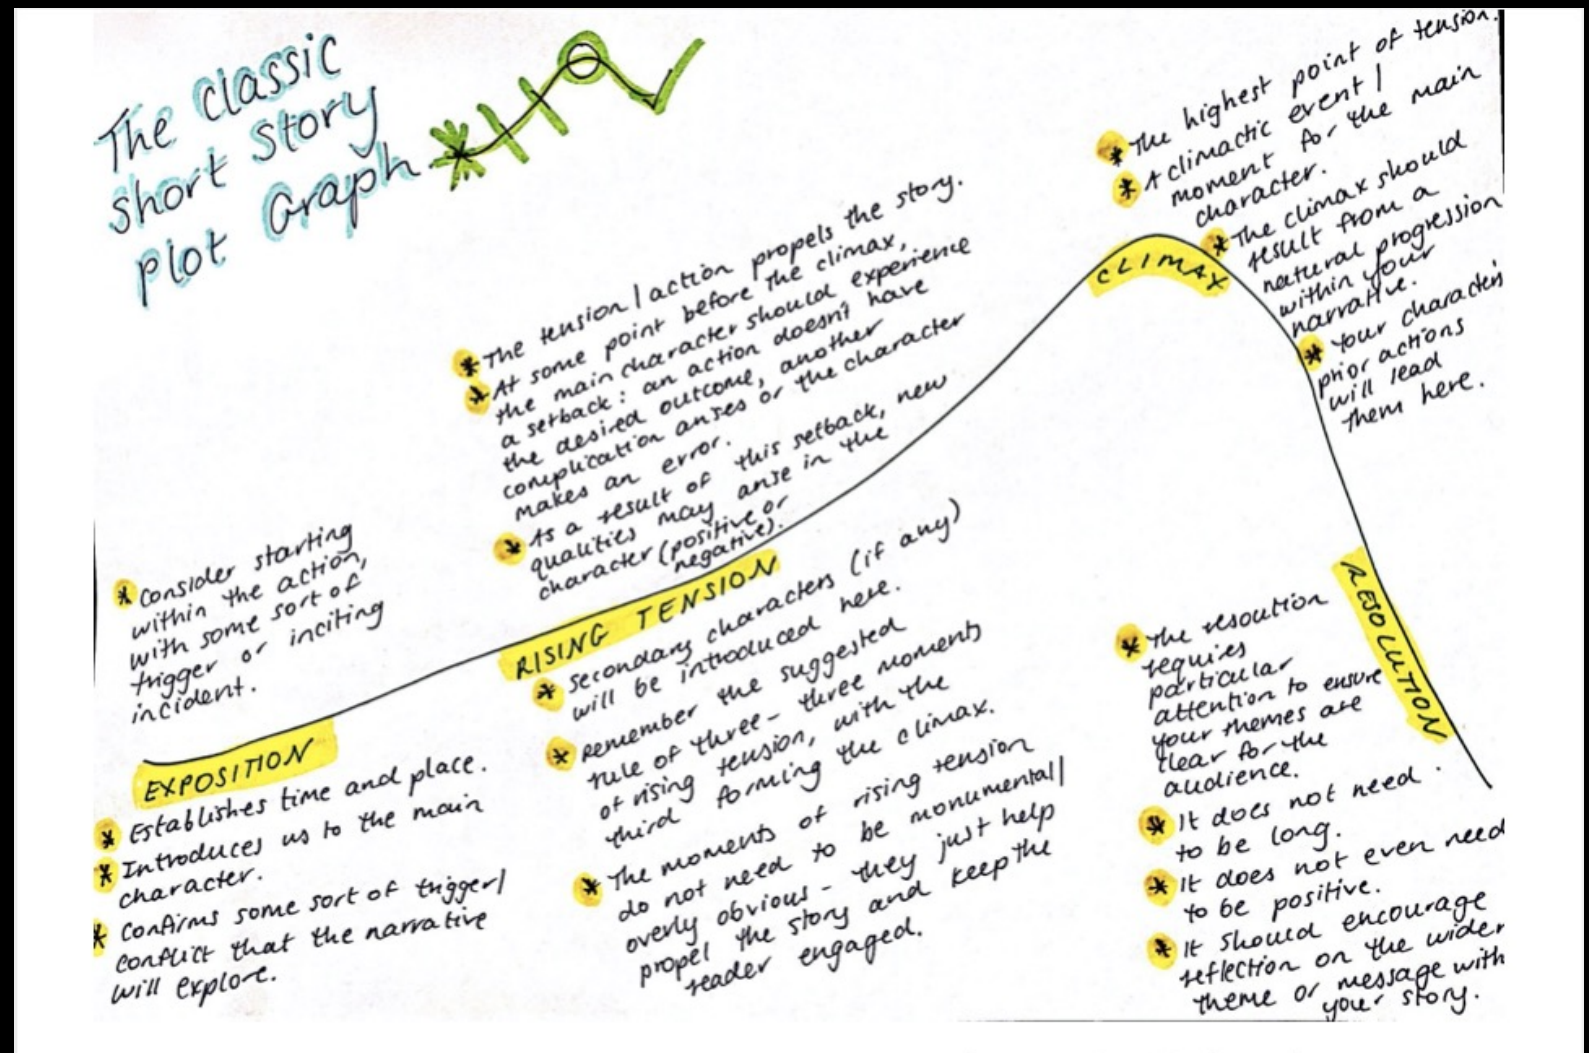 The Classic
Short Story
Plot Graph
* Consider starting
within the action,
with some sort of
trigger or inciting
incident.
EXPOSITION
* Establishes time and place.
* Introduces us to the main
character.
* Confirms some sort of trigger/
conflict that the narrative
will explore.
* The tension/action propels the story.
* At some point before the climax,
the main character should experience
a setback: an action doesn't have
the desired outcome, another
complication arises or the character
makes an error.
* As a result of this setback, new
qualities may arise in the
character (positive or
negative).
RISING TENSION
* Secondary characters (if any)
will be introduced here.
* Remember the suggested
rule of three - three moments
of rising tension, with the
third forming the climax.
* The moments of rising tension
do not need to be monumental/
overly obvious - they just help
propel the story and keep the
reader engaged.
* The highest point of tension.
* A climactic event/
moment for the main
character.
* The climax should
result from a
natural progression
within your
narrative.
* Your characters
prior actions
will lead
them here.
CLIMAX
RESOLUTION
* The resoution
requires
particular
attention to ensure
your themes are
clear for the
audience.
* It does not need
to be long.
* It does not even need
to be positive.
* It should encourage
reflection on the wider
theme or message with
your story.